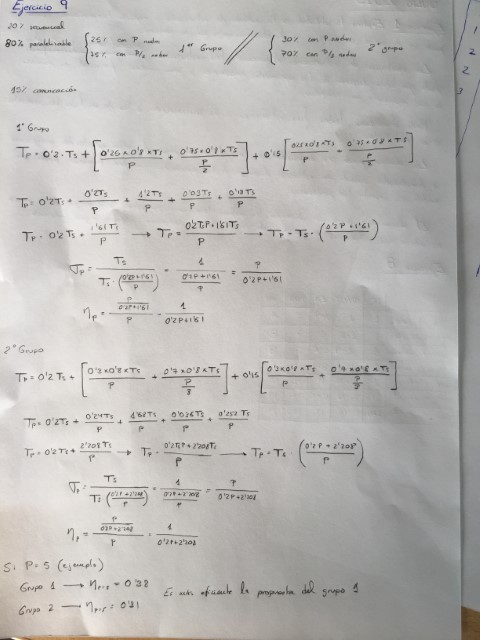 Ejercicio 9
20% secuencial
80% paralelizable { 25% con P nodos
75% con P/2 nodos
1er Grupo
{ 30% con P nodos
70% con P/3 nodos
2º grupo
15% comunicación
1º Grupo
Tp = 0'2 · Ts + [ 0'25 x 0'8 x Ts / P + 0'75 x 0'8 x Ts / (P/2) ] + 0'15 [ 0'25 x 0'8 x Ts / P + 0'75 x 0'8 x Ts / (P/2) ]
Tp = 0'2 Ts + 0'2 Ts / P + 1'2 Ts / P + 0'03 Ts / P + 0'18 Ts / P
Tp = 0'2 Ts + 1'61 Ts / P → Tp = 0'2 Ts P + 1'61 Ts / P → Tp = Ts · ( 0'2 P + 1'61 / P )
Ts / Ts · ( 0'2P + 1'61 / P ) = 1 / ( 0'2P + 1'61 / P ) = P / 0'2P + 1'61
ηp = ( P / 0'2P + 1'61 ) / P = 1 / 0'2P + 1'61
2º Grupo
Tp = 0'2 Ts + [ 0'3 x 0'8 x Ts / P + 0'7 x 0'8 x Ts / (P/3) ] + 0'15 [ 0'3 x 0'8 x Ts / P + 0'7 x 0'8 x Ts / ]
Tp = 0'2 Ts + 0'24 Ts / P + 1'68 Ts / P + 0'036 Ts / P + 0'252 Ts / P
Tp = 0'2 Ts + 2'208 Ts / P → Tp = 0'2 Ts P + 2'208 Ts / P → Tp = Ts · ( 0'2P + 2'208 / P )
Ts / Ts ( 0'2P + 2'208 / P ) = 1 / ( 0'2P + 2'208 / P ) = P / 0'2P + 2'208
ηp = ( P / 0'2P + 2'208 ) / P = 1 / 0'2P + 2'208
Si P = 5 (ejemplo)
Grupo 1 → ηp=5 = 0'38
Es más eficiente la propuesta del grupo 1
Grupo 2 → ηp=5 = 0'31